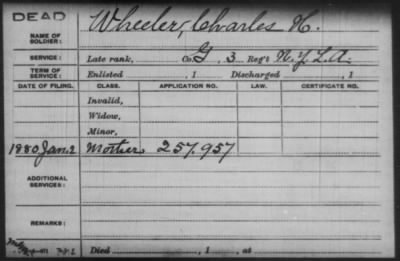 DEAD
NAME OF SOLDIER: Wheeler, Charles H.
SERVICE: Late rank, Co. G, 3 Reg't N.Y.L.A.
TERM OF SERVICE: Enlisted , 1 Discharged , 1
DATE OF FILING. CLASS. APPLICATION NO. LAW. CERTIFICATE NO.
Invalid,
Widow,
Minor,
1880 Jan. 2 Mother 257.957
ADDITIONAL SERVICES:
REMARKS:
Died , 1 , at